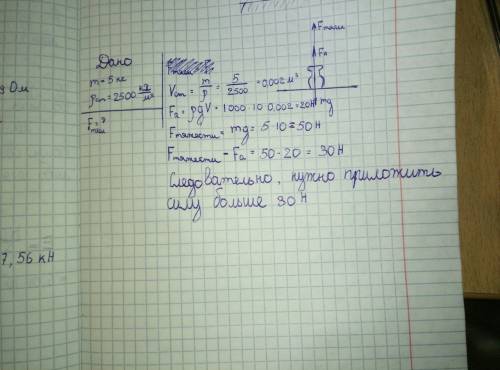 9 Ом
Дано
m = 5 кг
ρст = 2500 кг/м³
F = ?
V ст = m/ρ = 5/2500 = 0,002 м³
Fа = ρgV = 1000 · 10 · 0,002 = 20 Н
Fтяжести = mg = 5 · 10 = 50 Н
Fтяжести - Fа = 50 - 20 = 30 Н
Следовательно, нужно приложить
силу больше 30 Н
Fа
mg
7,56 кН